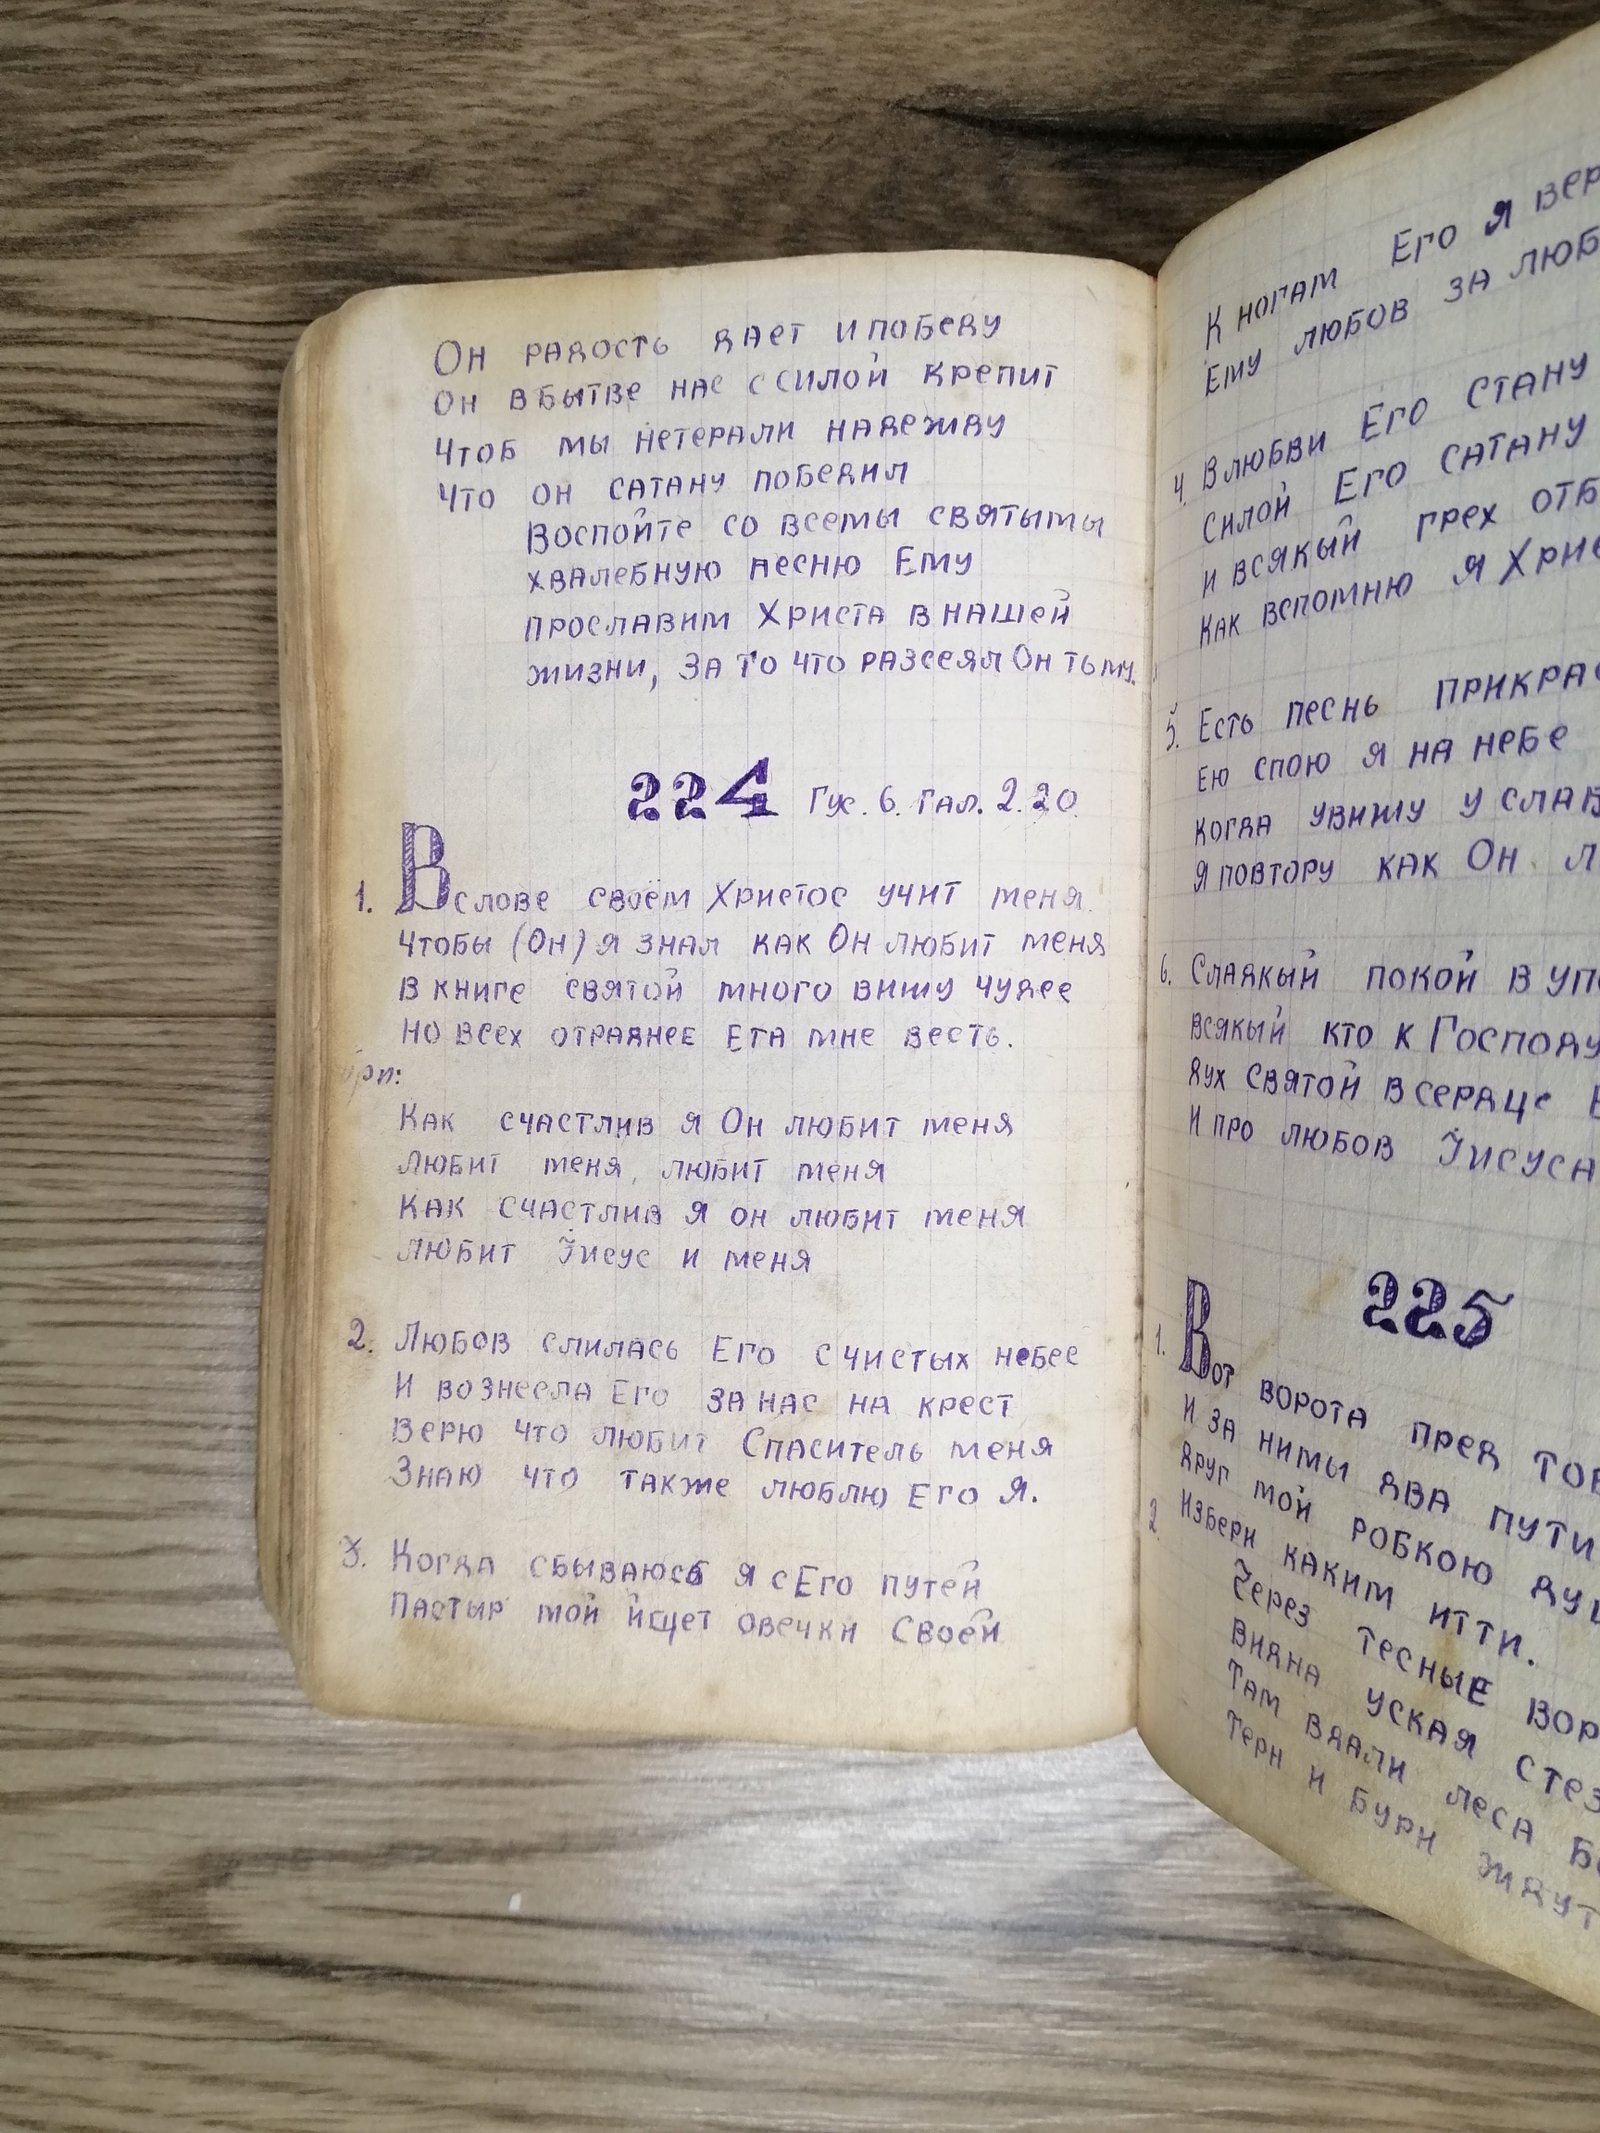 Он радость дает и победу
Он в бытве нас с силой крепит
Чтоб мы нетерали надежду
Что он сатану победил
Воспойте со всемы святымы
хвалебную песню Ему
прославим Христа в нашей
жизни, за то что разсеял Он тьму.
224 Гус. 6. Гал. 2.20.
1. В слове своём Христос учит меня.
Чтобы (Он) я знал как Он любит меня
В книге святой много вижу чудес
Но всех отраднее Ета мне весть.
прп:
Как счастлив я Он любит меня
Любит меня, любит меня
Как счастлив я он любит меня
Любит Іисус и меня
2. Любов слилась Его с чистых небес
И вознесла Его за нас на крест
Верю что любит Спаситель меня
Знаю что также люблю Его я.
3. Когда сбываюсь я с Его путей
Пастыр мой йщет овечки Своей
К ногам Его я вер
Ему любов за люб
4. В любви Его стану
силой Его сатану
и всякый грех отб
Как вспомню я Хрис
5. Есть песнь прикрас
Ею спою я на небе
когда увижу у слав
Я повтору как Он л
6. Сладкый покой в уп
всякый кто к Господу
дух святой в сердце
И про любов Іисуса
225
1. Вот ворота пред тоб
И за нимы два пути
друг мой робкою душ
2. Избери каким итти.
Через тесные вор
видна уская стез
Там вдали леса
терн и бури ждут